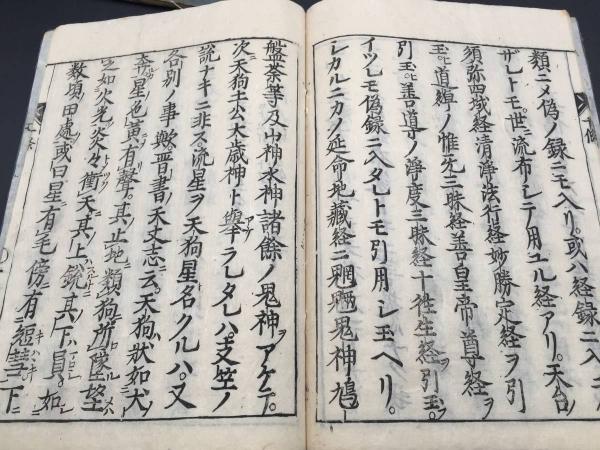 類ニメ偽ノ録ニモヘリ。或ハ経録ニ入ス
ザレトモ。世ニ流布シテ用ユル経アリ。天台
須弥四域経清浄法行経妙勝定経ヲ引
玉ヒ道綽ノ惟先三昧経善皇帝尊経ヲ
引玉ヒ善導ノ浄度三昧経十往生経ヲ引玉。
イツレモ偽録ニ入タレトモ引用シ玉ヘリ。
シカルニカノ延命地藏経ニ魍魎鬼神鳩
盤荼等及山神水神諸餘ノ鬼神ヲアケテ。
次天狗土公大歳神ト擧ラレタレハ。支竺ノ
説ナキニ非ス。流星ヲ天狗星名クルハ。又
各別ノ事歟晋書ノ天文志云。天狗状如犬
奔星。色黄有聲。其止地類狗所墜。望
之如火光炎々衝天。其上鋭其下圓。如
數頃田處。或曰星有毛傍有短彗下